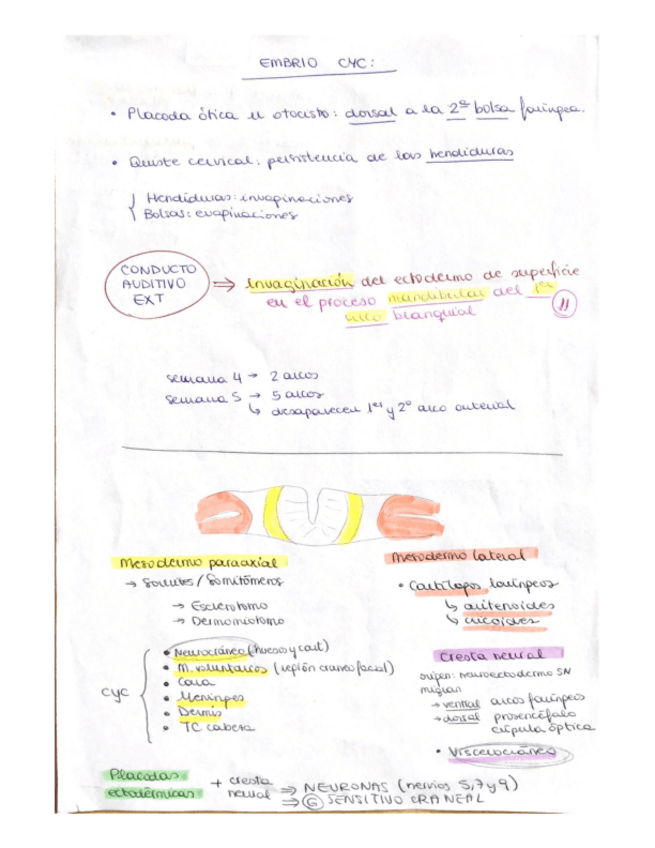 EMBRIO CYC:
• Placoda ótica u otocisto: dorsal a la 2ª bolsa faríngea.
• Quiste cervical: persistencia de las hendiduras
Hendiduras: invaginaciones
Bolsas: evaginaciones
CONDUCTO AUDITIVO EXT
⇒ Invaginación del ectodermo de superficie
en el proceso mandibular del 1er
arco branquial
semana 4 → 2 arcos
semana 5 → 5 arcos
↳ desaparecen 1er y 2º arco arterial
Mesodermo paraaxial
→ Somites / Somitómeros
→ Esclerotomo
→ Dermomiotomo
CYC
• Neurocráneo (huesos y cart)
• M. voluntarios (región craneofacial)
• Cara
• Meninges
• Dermis
• TC cabeza
Mesodermo lateral
• Cartílagos laríngeos
↳ aritenoides
↳ cricoides
Cresta neural
origen: neuroectodermo SN
migran
→ ventral arcos faríngeos
→ dorsal prosencéfalo
cúpula óptica
• Viscerocráneo
Placodas ectodérmicas + cresta neural ⇒ NEURONAS (nervios 5, 7 y 9)
⇒ G SENSITIVO CRANEAL